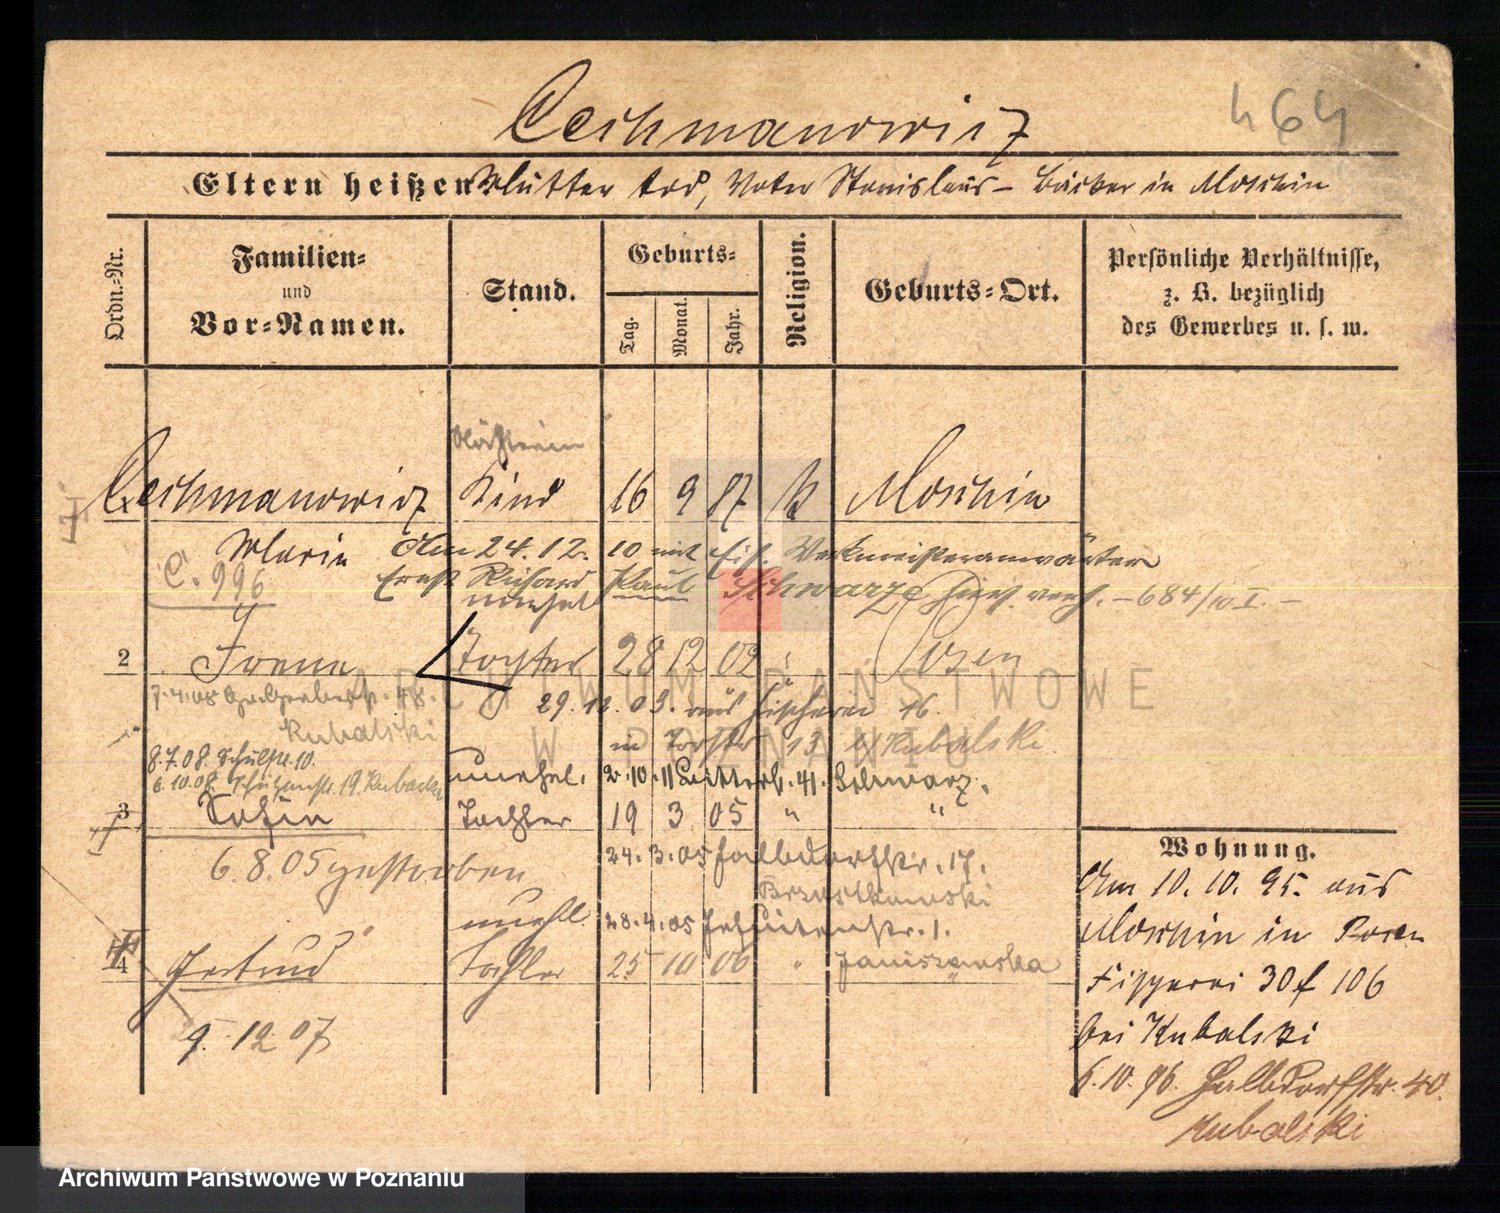 464
Cechmanowicz
Eltern heißen Mutter tod, Vater Stanislaus - Bäcker in Moschin
Ordn.-Nr.
Familien-
und
Vor-Namen.
Stand.
Geburts-
Tag.
Monat.
Jahr.
Religion.
Geburts-Ort.
Persönliche Verhältnisse,
z. B. bezüglich
des Gewerbes u. s. w.
Nähterin
Cechmanowicz Kind 16 9 87 k Moschin
Maria Am 24. 12. 10 mit Werkmeisteranwärter
C. 996 Ernst Richard Paul Schwarz verh. - 684/10 I. -
unehel
2 Irena Tochter 28 12 02 Posen
7.4.08 48. 29. 12. 03. aus Fischerei 16.
Kubalski in 13 b/ Kubalski
8.7.08. Schulstr. 10.
6.10.08 Schützenstr. 19 unehel. 2.10.11 41. Schwarz.
3 Sofia Tochter 19 3 05 " "
6.8.05 gestorben 24.3.05 Halbdorfstr. 17.
Brzostkowski
unehl. 28.4.05 Jesuitenstr. 1.
4 Gertrud Tochter 25 10 06 " Janiszewska
9. 12 07
Wohnung.
Am 10. 10. 95. aus
Moschin in Posen
Fischerei 30 f 106
bei Kubalski
6.10.96. Halbdorfstr. 40.
Kubalski
ARCHIWUM PAŃSTWOWE
W POZNANIU
Archiwum Państwowe w Poznaniu